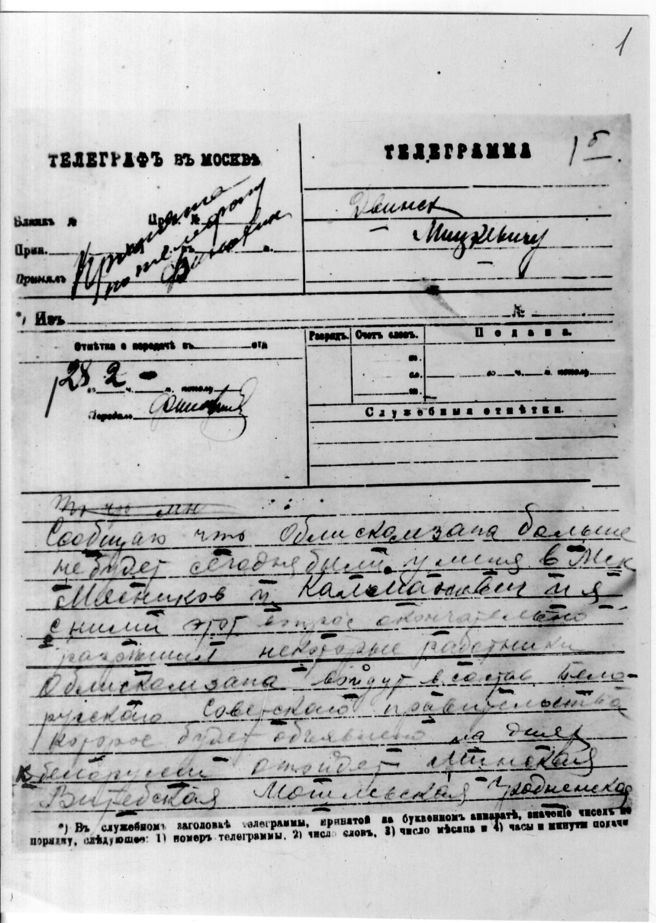 1
ТЕЛЕГРАФЪ ВЪ МОСКВѢ.
ТЕЛЕГРАММА
1 б.
Бланкъ № Пр. №
Прин. въ ч.
Принялъ
Принята
по телеграфу
Двинск
Мицкевичу
*) Изъ №
Отмѣтка о передачѣ въ ота
28 2
ч. м. пополу
Передалъ
Разрядъ. Счетъ словъ. Подана.
го. ч. м. пополу.
Служебныя отмѣтки.
Сообщаю что Облискомзапа больше
не будет сегодня были у меня в Мск
Мясников и Калманович и я
с ними этот вопрос окончательно
разрешил некоторые работники
Облискомзапа войдут в состав Бело-
русского Советского правительства
которое будет объявлено на днях
к белорусси отойдет Минская
Витебская Могилевская Гродненская
*) Въ служебномъ заголовкѣ телеграммы, принятой на буквенномъ аппаратѣ, значеніе чиселъ по
порядку, слѣдующее: 1) номеръ телеграммы, 2) число словъ, 3) число мѣсяца и 4) часы и минуты подачи